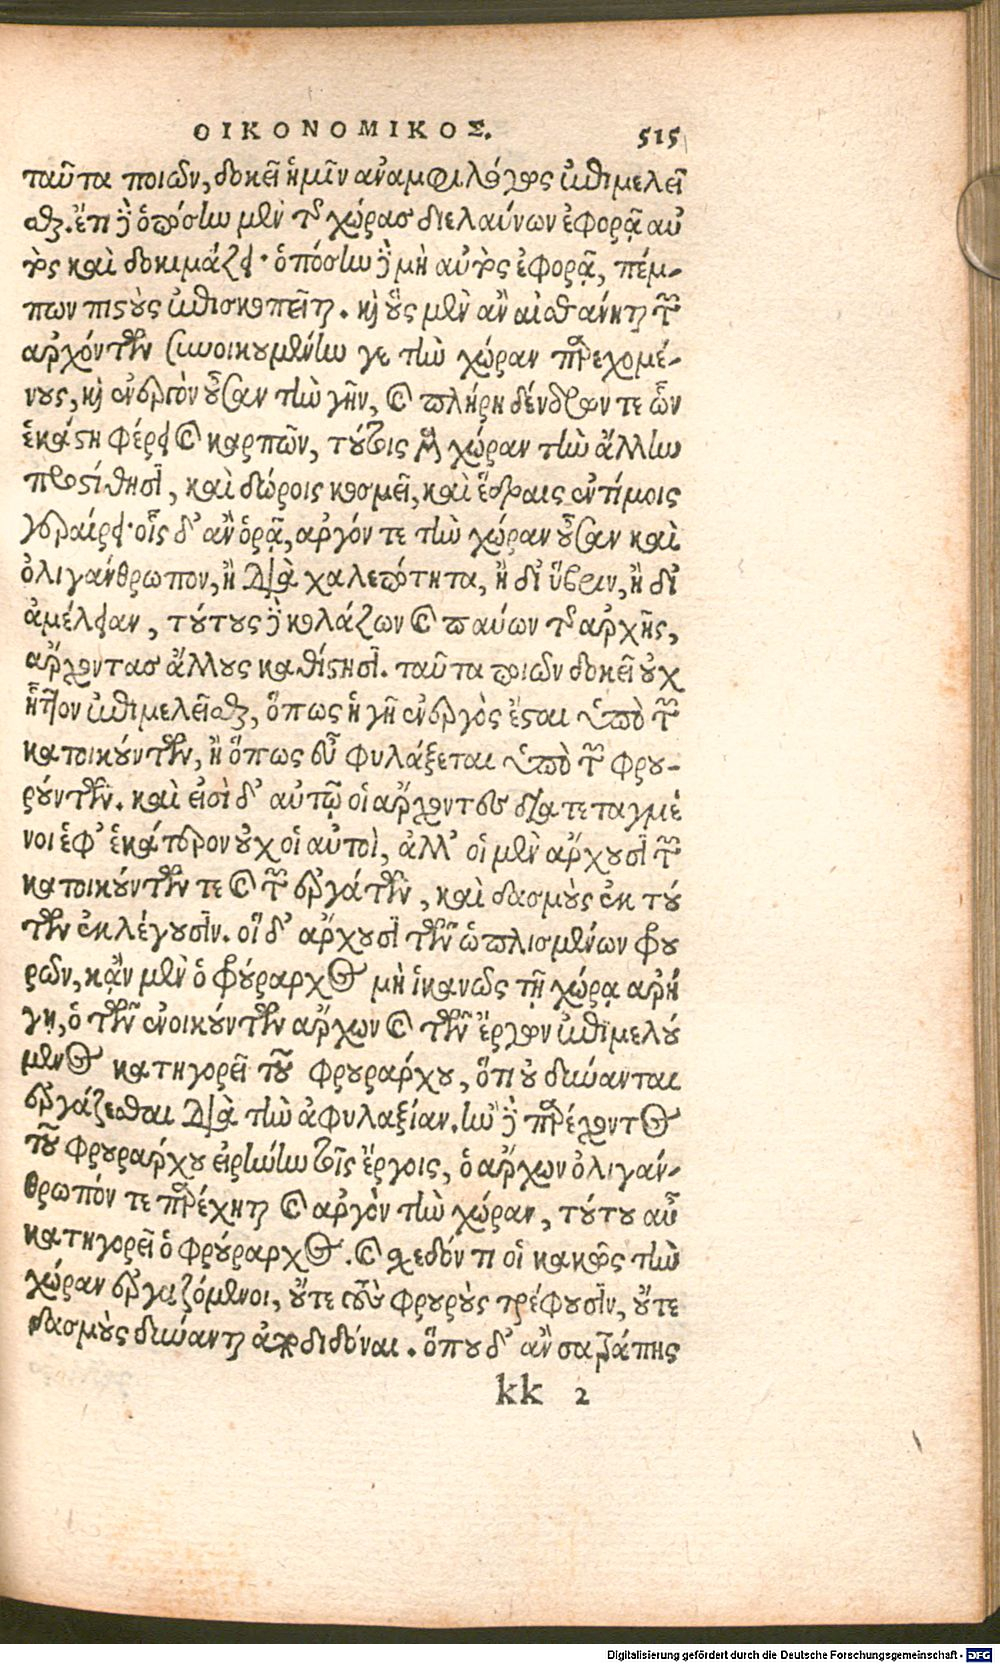 ΟΙΚΟΝΟΜΙΚΟΣ. 515
ταῦτα ποιῶν, δοκεῖ ἡμῖν ἀναμφιλόγως ἐπιμελεῖ
σθαι. ἔτι δὲ ὁπόσην μὲν τῆς χώρας διελαύνων ἐφορᾷ αὐ
τὸς καὶ δοκιμάζει· ὁπόσην δὲ μὴ αὐτὸς ἐφορᾷ, πέμ-
πων πιστοὺς ἐπισκοπεῖται. καὶ οὓς μὲν ἂν αἰσθάνηται τῶν
ἀρχόντων συνοικουμένην γε τὴν χώραν παρεχομέ-
νους, καὶ ἐνεργὸν οὖσαν τὴν γῆν, καὶ πλήρη δένδρων τε ὧν
ἑκάστη φέρει καὶ καρπῶν, τούτοις μὲν χώραν τὴν ἄλλην
προστίθησι, καὶ δώροις κοσμεῖ, καὶ ἕδραις ἐντίμοις
γεραίρει· οἷς δ' ἂν ὁρᾷ, ἀργόν τε τὴν χώραν οὖσαν καὶ
ὀλιγάνθρωπον, ἢ διὰ χαλεπότητα, ἢ δι' ὕβριν, ἢ δι'
ἀμέλειαν, τούτους δὲ κολάζων καὶ παύων τῆς ἀρχῆς,
ἄρχοντας ἄλλους καθίστησι. ταῦτα ποιῶν δοκεῖ οὐχ
ἧττον ἐπιμελεῖσθαι, ὅπως ἡ γῆ ἐνεργὸς ἔσται ὑπὸ τῶν
κατοικούντων, ἢ ὅπως εὖ φυλάξεται ὑπὸ τῶν φρου-
ρούντων. καὶ εἰσὶ δ' αὐτῷ οἱ ἄρχοντες διατεταγμέ
νοι ἐφ' ἑκάτερον οὐχ οἱ αὐτοὶ, ἀλλ' οἱ μὲν ἄρχουσι τῶν
κατοικούντων τε καὶ τῶν ἐργατῶν, καὶ δασμοὺς ἐκ τού
των ἐκλέγουσιν. οἵ δ' ἄρχουσι τῶν ὡπλισμένων φρου
ρῶν, κἂν μὲν ὁ φρούραρχος μὴ ἱκανῶς τῇ χώρᾳ ἀρή
γῃ, ὁ τῶν ἐνοικούντων ἄρχων καὶ τῶν ἔργων ἐπιμελού
μενος κατηγορεῖ τοῦ φρουράρχου, ὅτι οὐ δύνανται
ἐργάζεσθαι διὰ τὴν ἀφυλαξίαν. ἢν δὲ παρέχοντος
τοῦ φρουράρχου εἰρήνην τοῖς ἔργοις, ὁ ἄρχων ὀλιγάν-
θρωπόν τε παρέχηται καὶ ἀργὸν τὴν χώραν, τούτου αὖ
κατηγορεῖ ὁ φρούραρχος. καὶ σχεδόν τι οἱ κακῶς τὴν
χώραν ἐργαζόμενοι, οὔτε τοὺς φρουροὺς τρέφουσιν, οὔτε
δασμοὺς δύνανται ἀποδιδόναι. ὅπου δ' ἂν σατράπης
kk 2
Digitalisierung gefördert durch die Deutsche Forschungsgemeinschaft - DFG